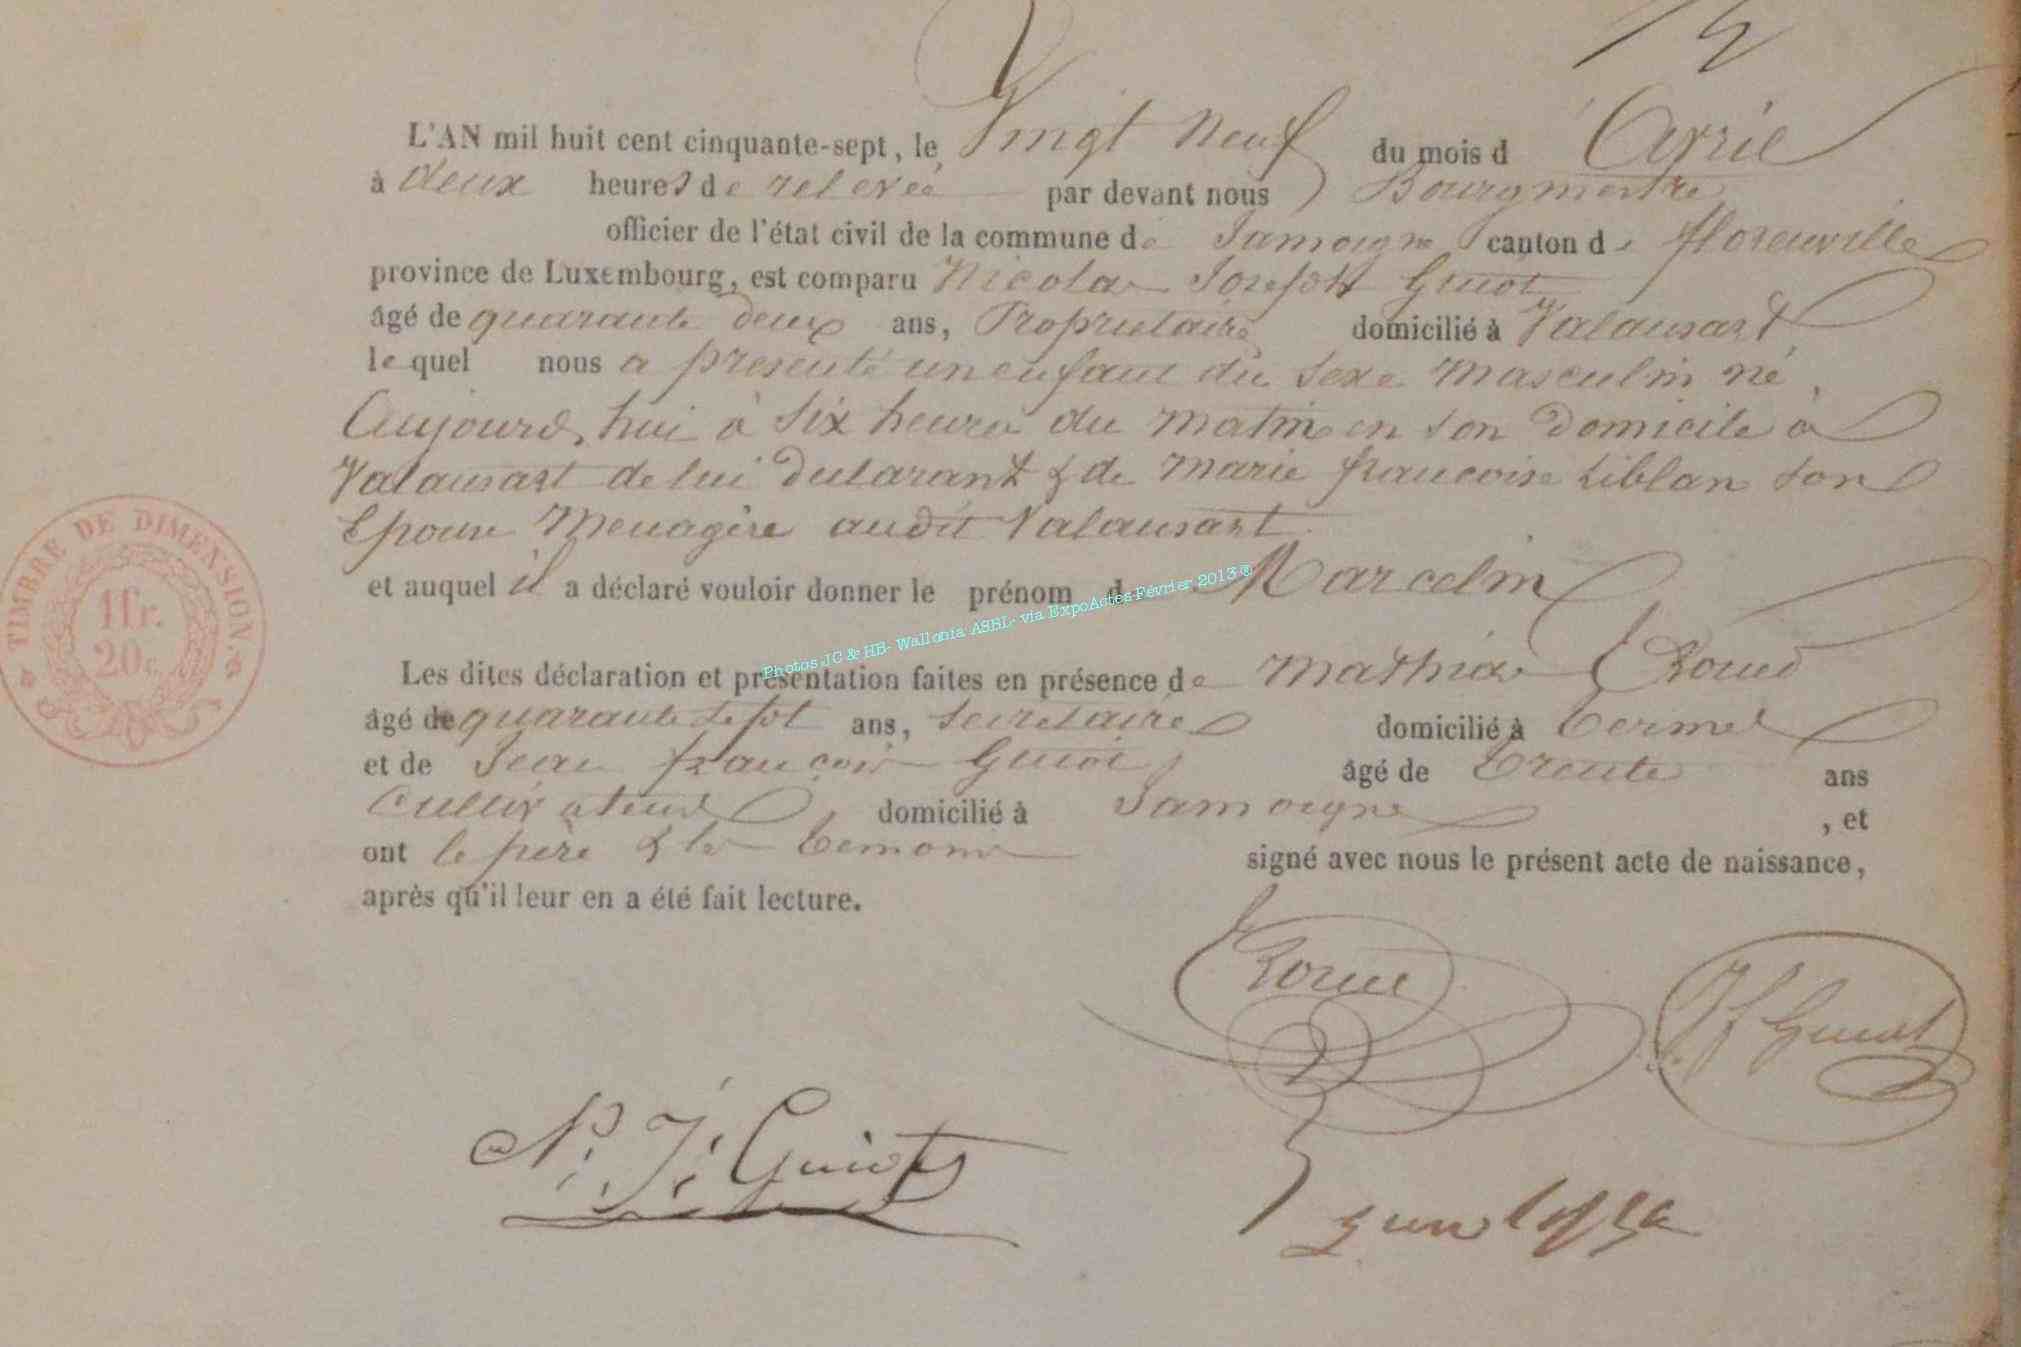 12
L'AN mil huit cent cinquante-sept, le Vingt Neuf du mois d'Avril
à deux heures de relevée par devant nous Bourgmestre
officier de l'état civil de la commune de Jamoigne canton de florenville
province de Luxembourg, est comparu Nicolas Joseph Guiot
âgé de quarante deux ans, Propriétaire domicilié à Valansart
lequel nous a presenté un enfant du sexe masculin né
Aujourd'hui à six heures du matin en son domicile à
Valansart de lui déclarant & de Marie francoise Liblan son
Epouse Menagère audit Valansart
et auquel il a déclaré vouloir donner le prénom de Marcelin
Photos JC & HB- Wallonia ASBL- via ExpoActes-Février 2013 ®
Les dites déclaration et présentation faites en présence de Mathias
âgé de quarante sept ans, secretaire domicilié à Termes
et de Jean françois Guiot âgé de trente ans
Cultivateur domicilié à Jamoigne , et
ont le père & les temoins signé avec nous le présent acte de naissance,
après qu'il leur en a été fait lecture.
TIMBRE DE DIMENSION.
1 fr.
20 c.
J f Guiot
N. J. Guiot